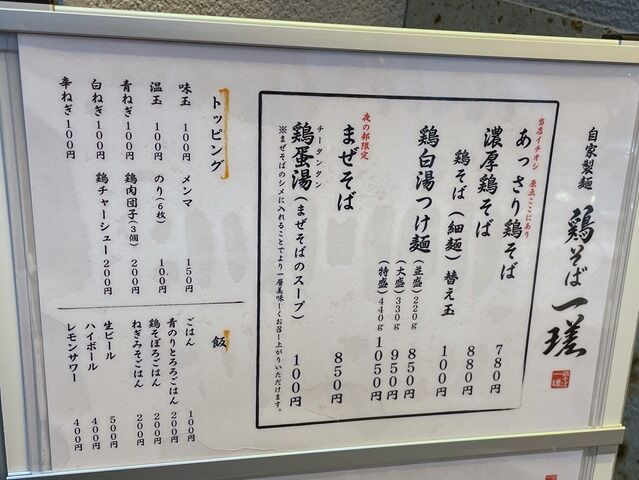 自家製麺 鶏そば 一瑳
当店イチオシ 原点ここにあり
あっさり鶏そば 780円
濃厚鶏そば 880円
鶏そば(細麺)替え玉 100円
鶏白湯つけ麺
(並盛)220g 850円
(大盛)330g 950円
(特盛)440g 1050円
夜の部限定
まぜそば 850円
チータンタン
鶏蛋湯(まぜそばのスープ) 100円
※まぜそばのシメに入れることでより一層美味しくお召し上がりいただけます。
トッピング
味玉 100円
メンマ 150円
温玉 100円
のり(6枚) 100円
青ねぎ 100円
鶏肉団子(3個) 200円
白ねぎ 100円
鶏チャーシュー 200円
辛ねぎ 100円
飯
ごはん 100円
青のりとろろごはん 200円
鶏そぼろごはん 200円
ねぎみそごはん 200円
生ビール 500円
ハイボール 400円
レモンサワー 400円